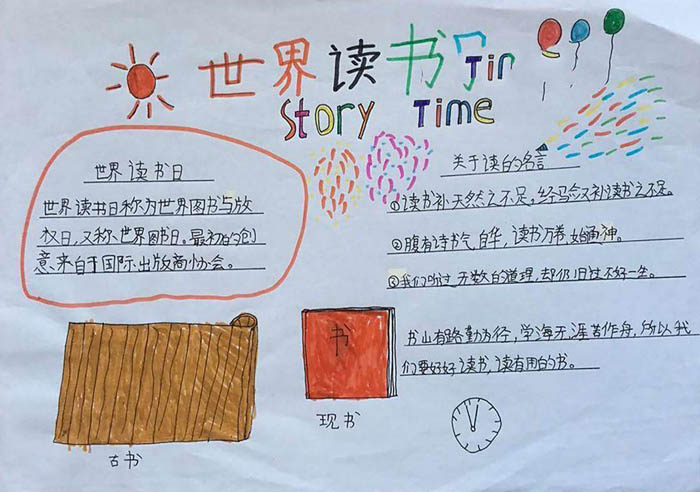 世界读书
Story Time
世界读书日
世界读书日称为世界图书与版
权日，又称世界图书日。最初的创
意来自于国际出版商协会。
关于读的名言
①读书补天然之不足，经验又补读书之不足。
②腹有诗书气自华，读书万卷始通神。
③我们听过无数的道理，却仍旧过不好一生。
书山有路勤为径，学海无涯苦作舟，所以我
们要好好读书，读有用的书。
书
古书
现书